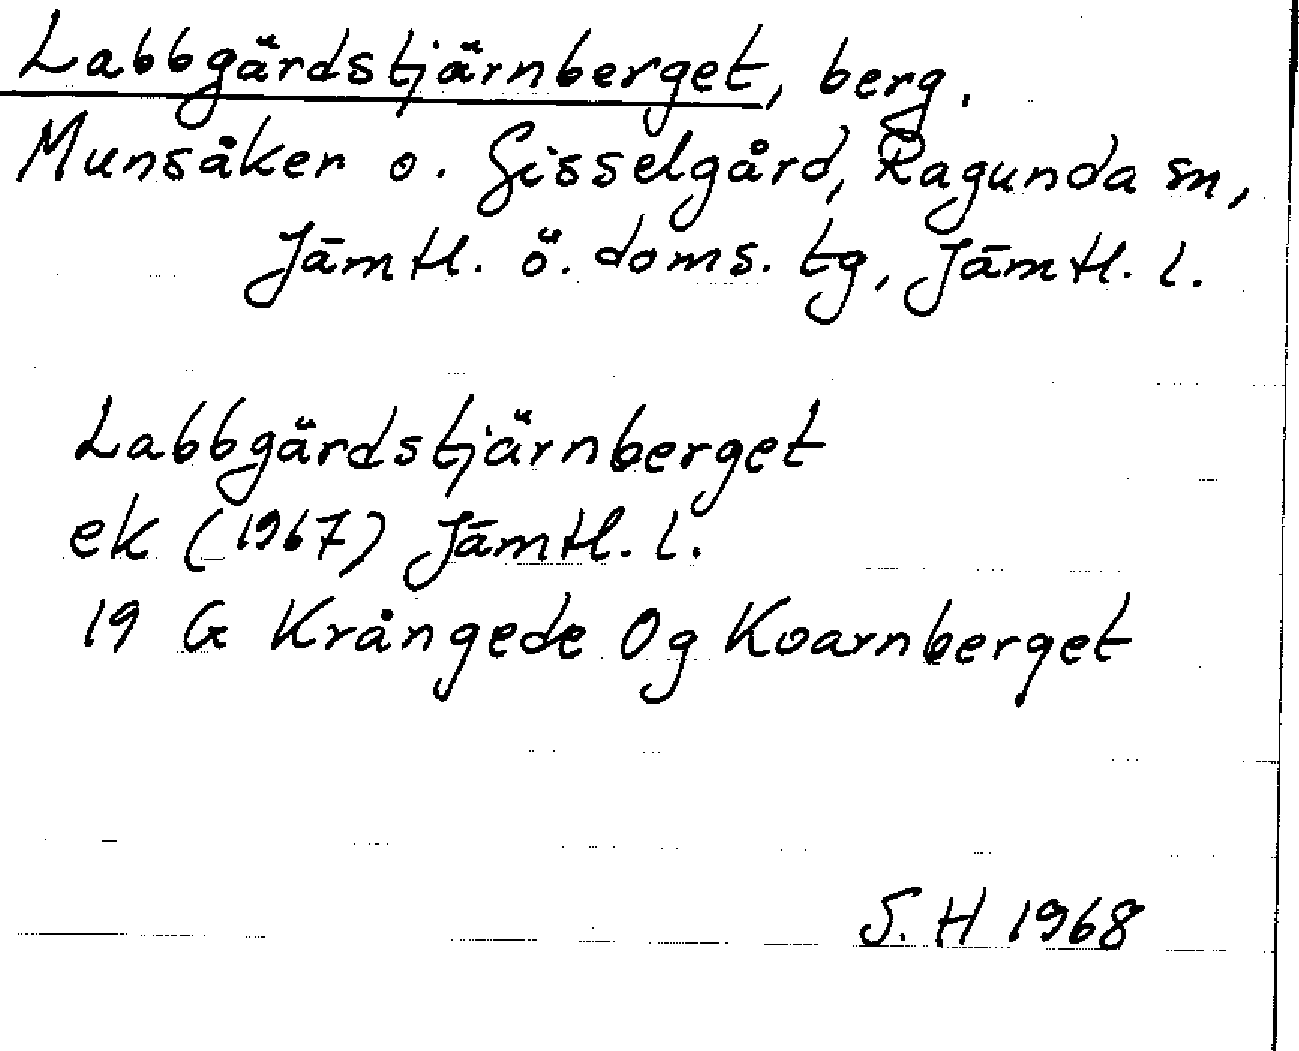 Labbgärdstjärnberget, berg.
Munsåker o. Gisselgård, Ragunda sn,
Jämtl. ö. doms. tg, Jämtl. l.
Labbgärdstjärnberget
ek (1967) Jämtl. l.
19 G Krångede 0g Kvarnberget
S. H 1968